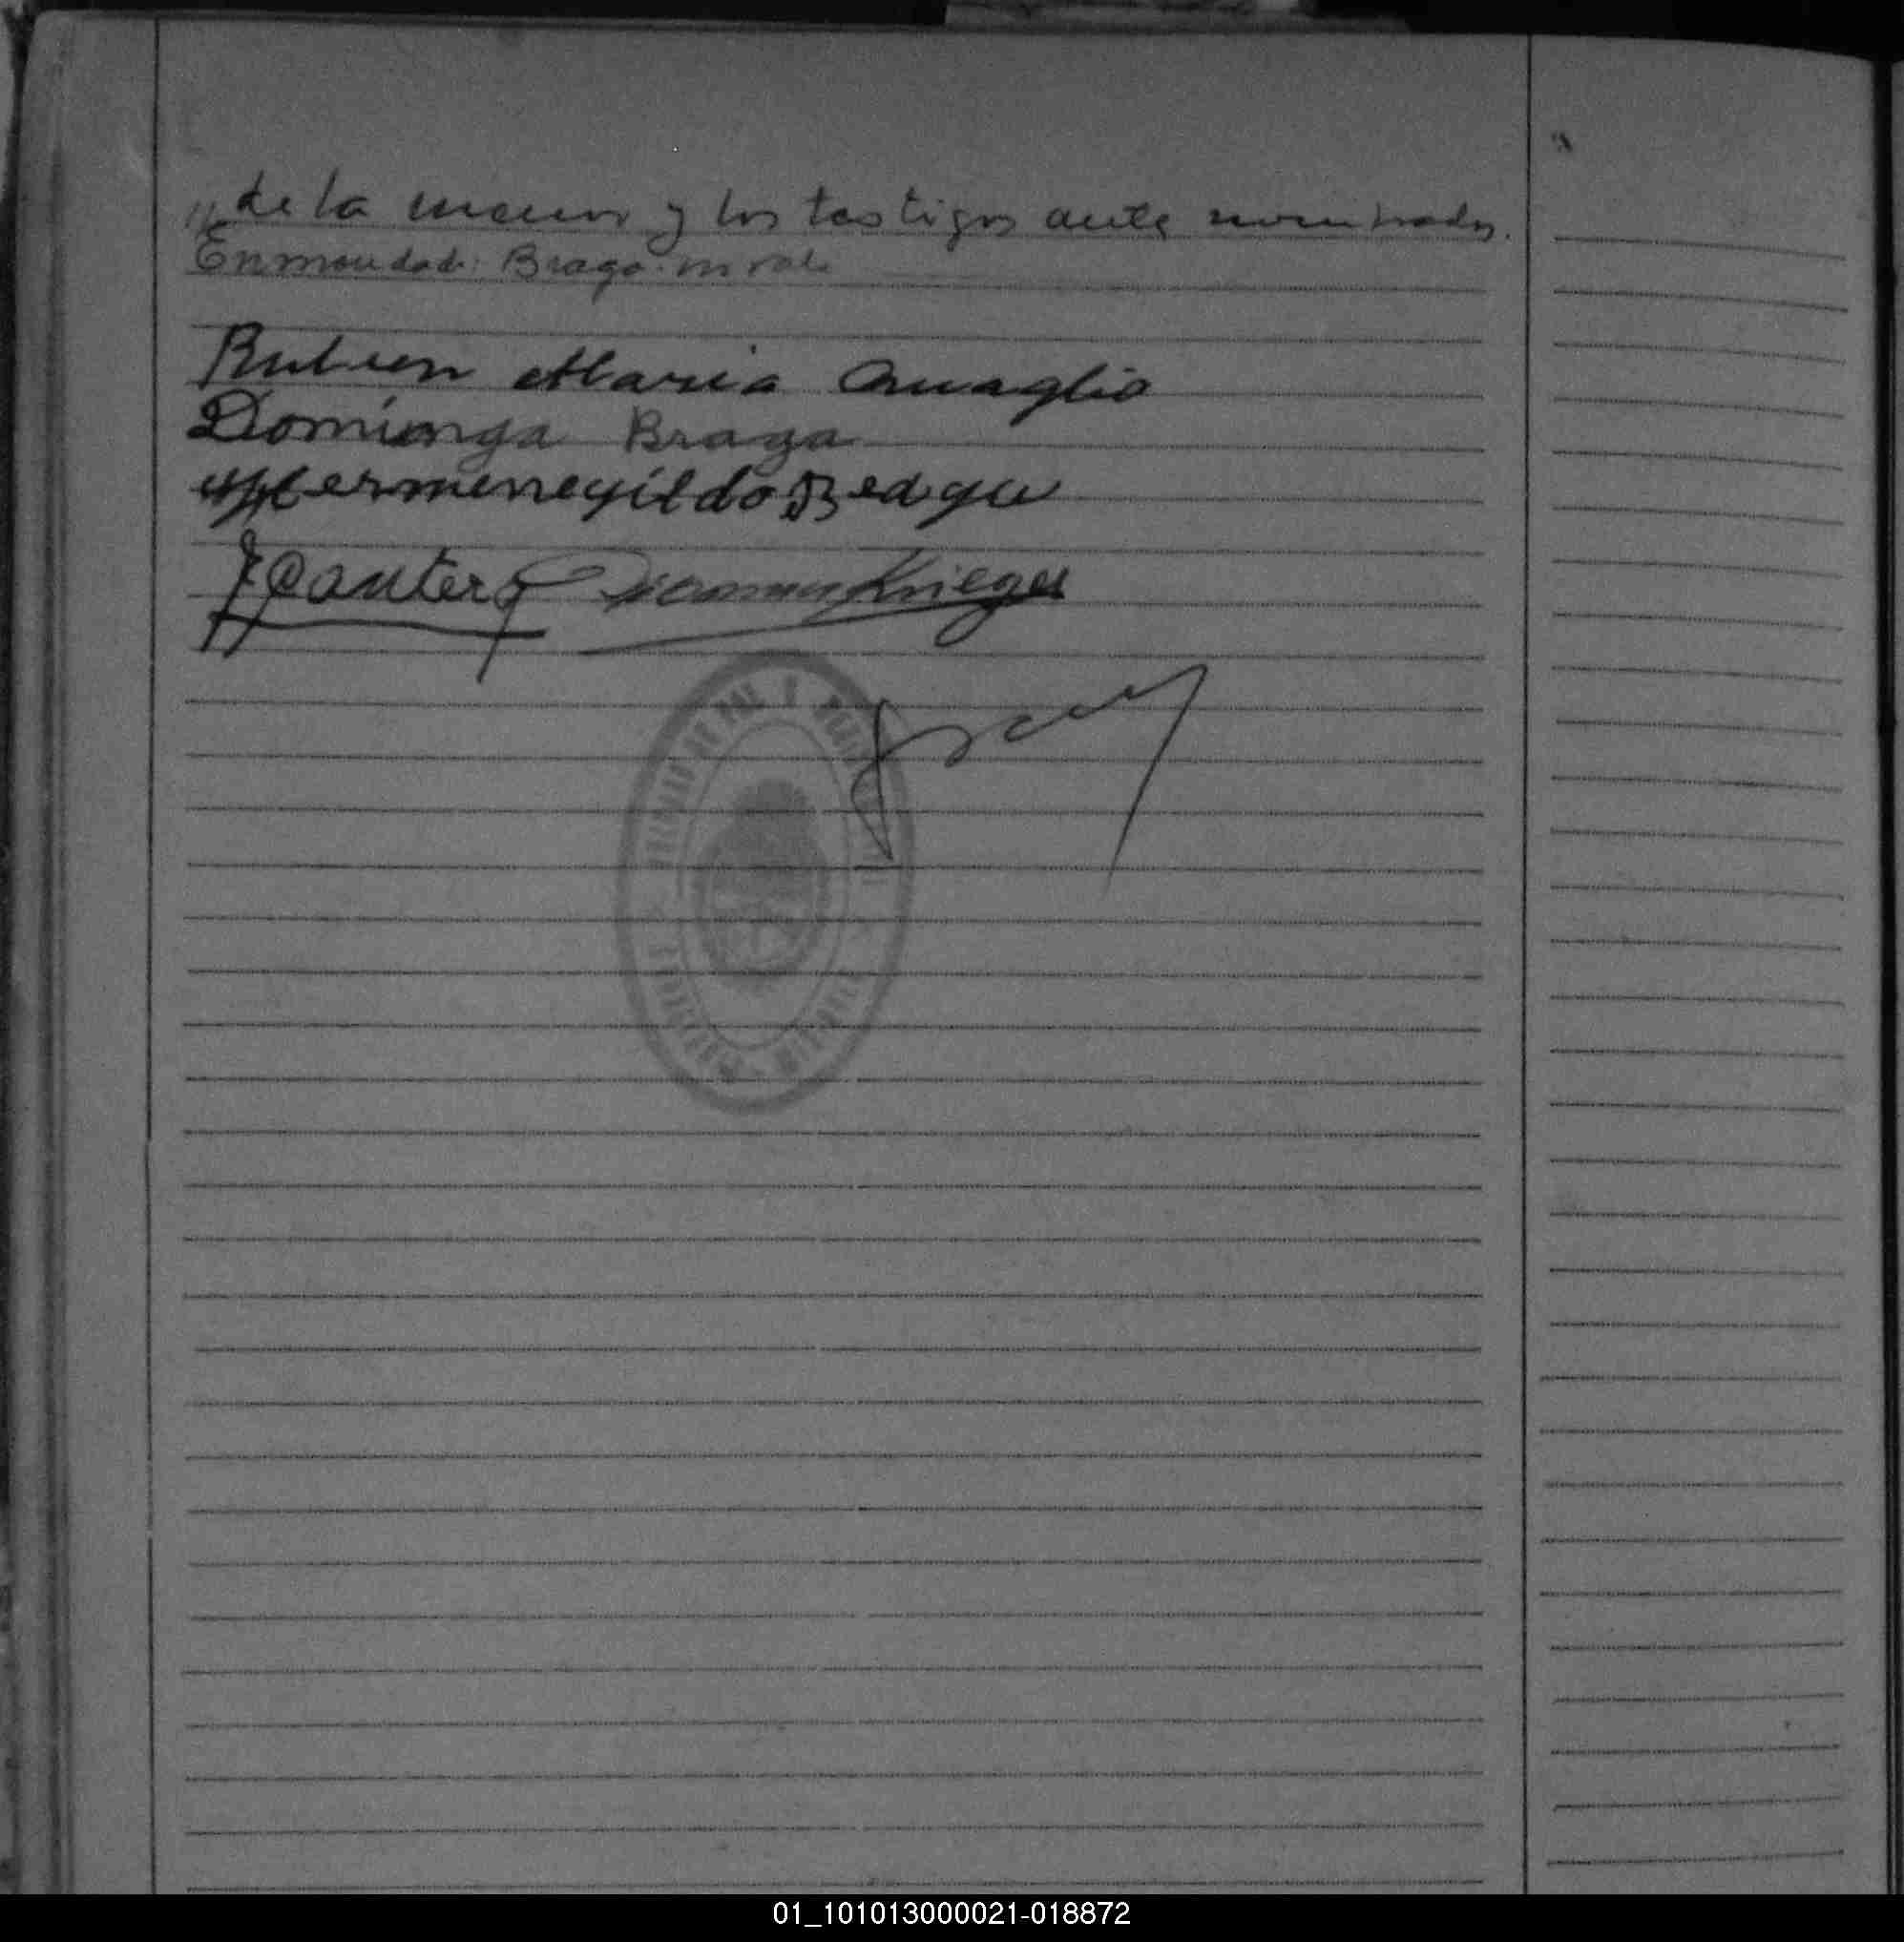 // de la menor y los testigos ante nombrados.
Enmendado: Braga. vale
Ruben Maria Quaglia
Dominga Braga
Hermenegildo Bedqu
J Cantero Krieger
JUZGADO DE PAZ Y
01_101013000021-018872